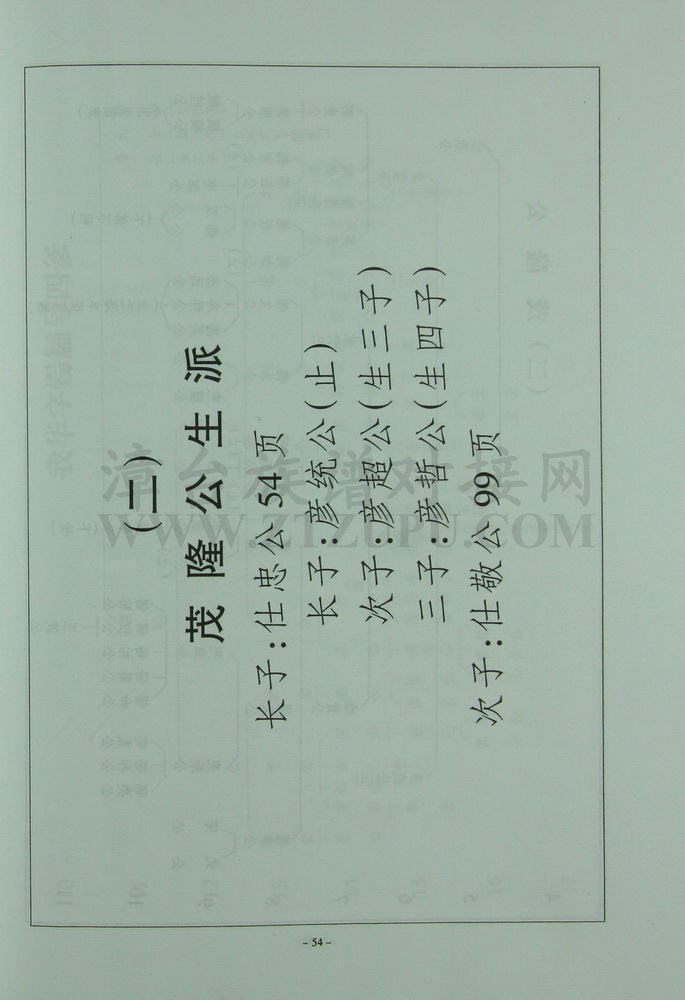 (二)
茂隆公生派
长子:仕忠公54页
长子:彦统公(止)
次子:彦超公(生三子)
三子:彦哲公(生四子)
次子:仕敬公99页
漳台族谱对接网
WWW.ZTZUPU.COM
- 54 -